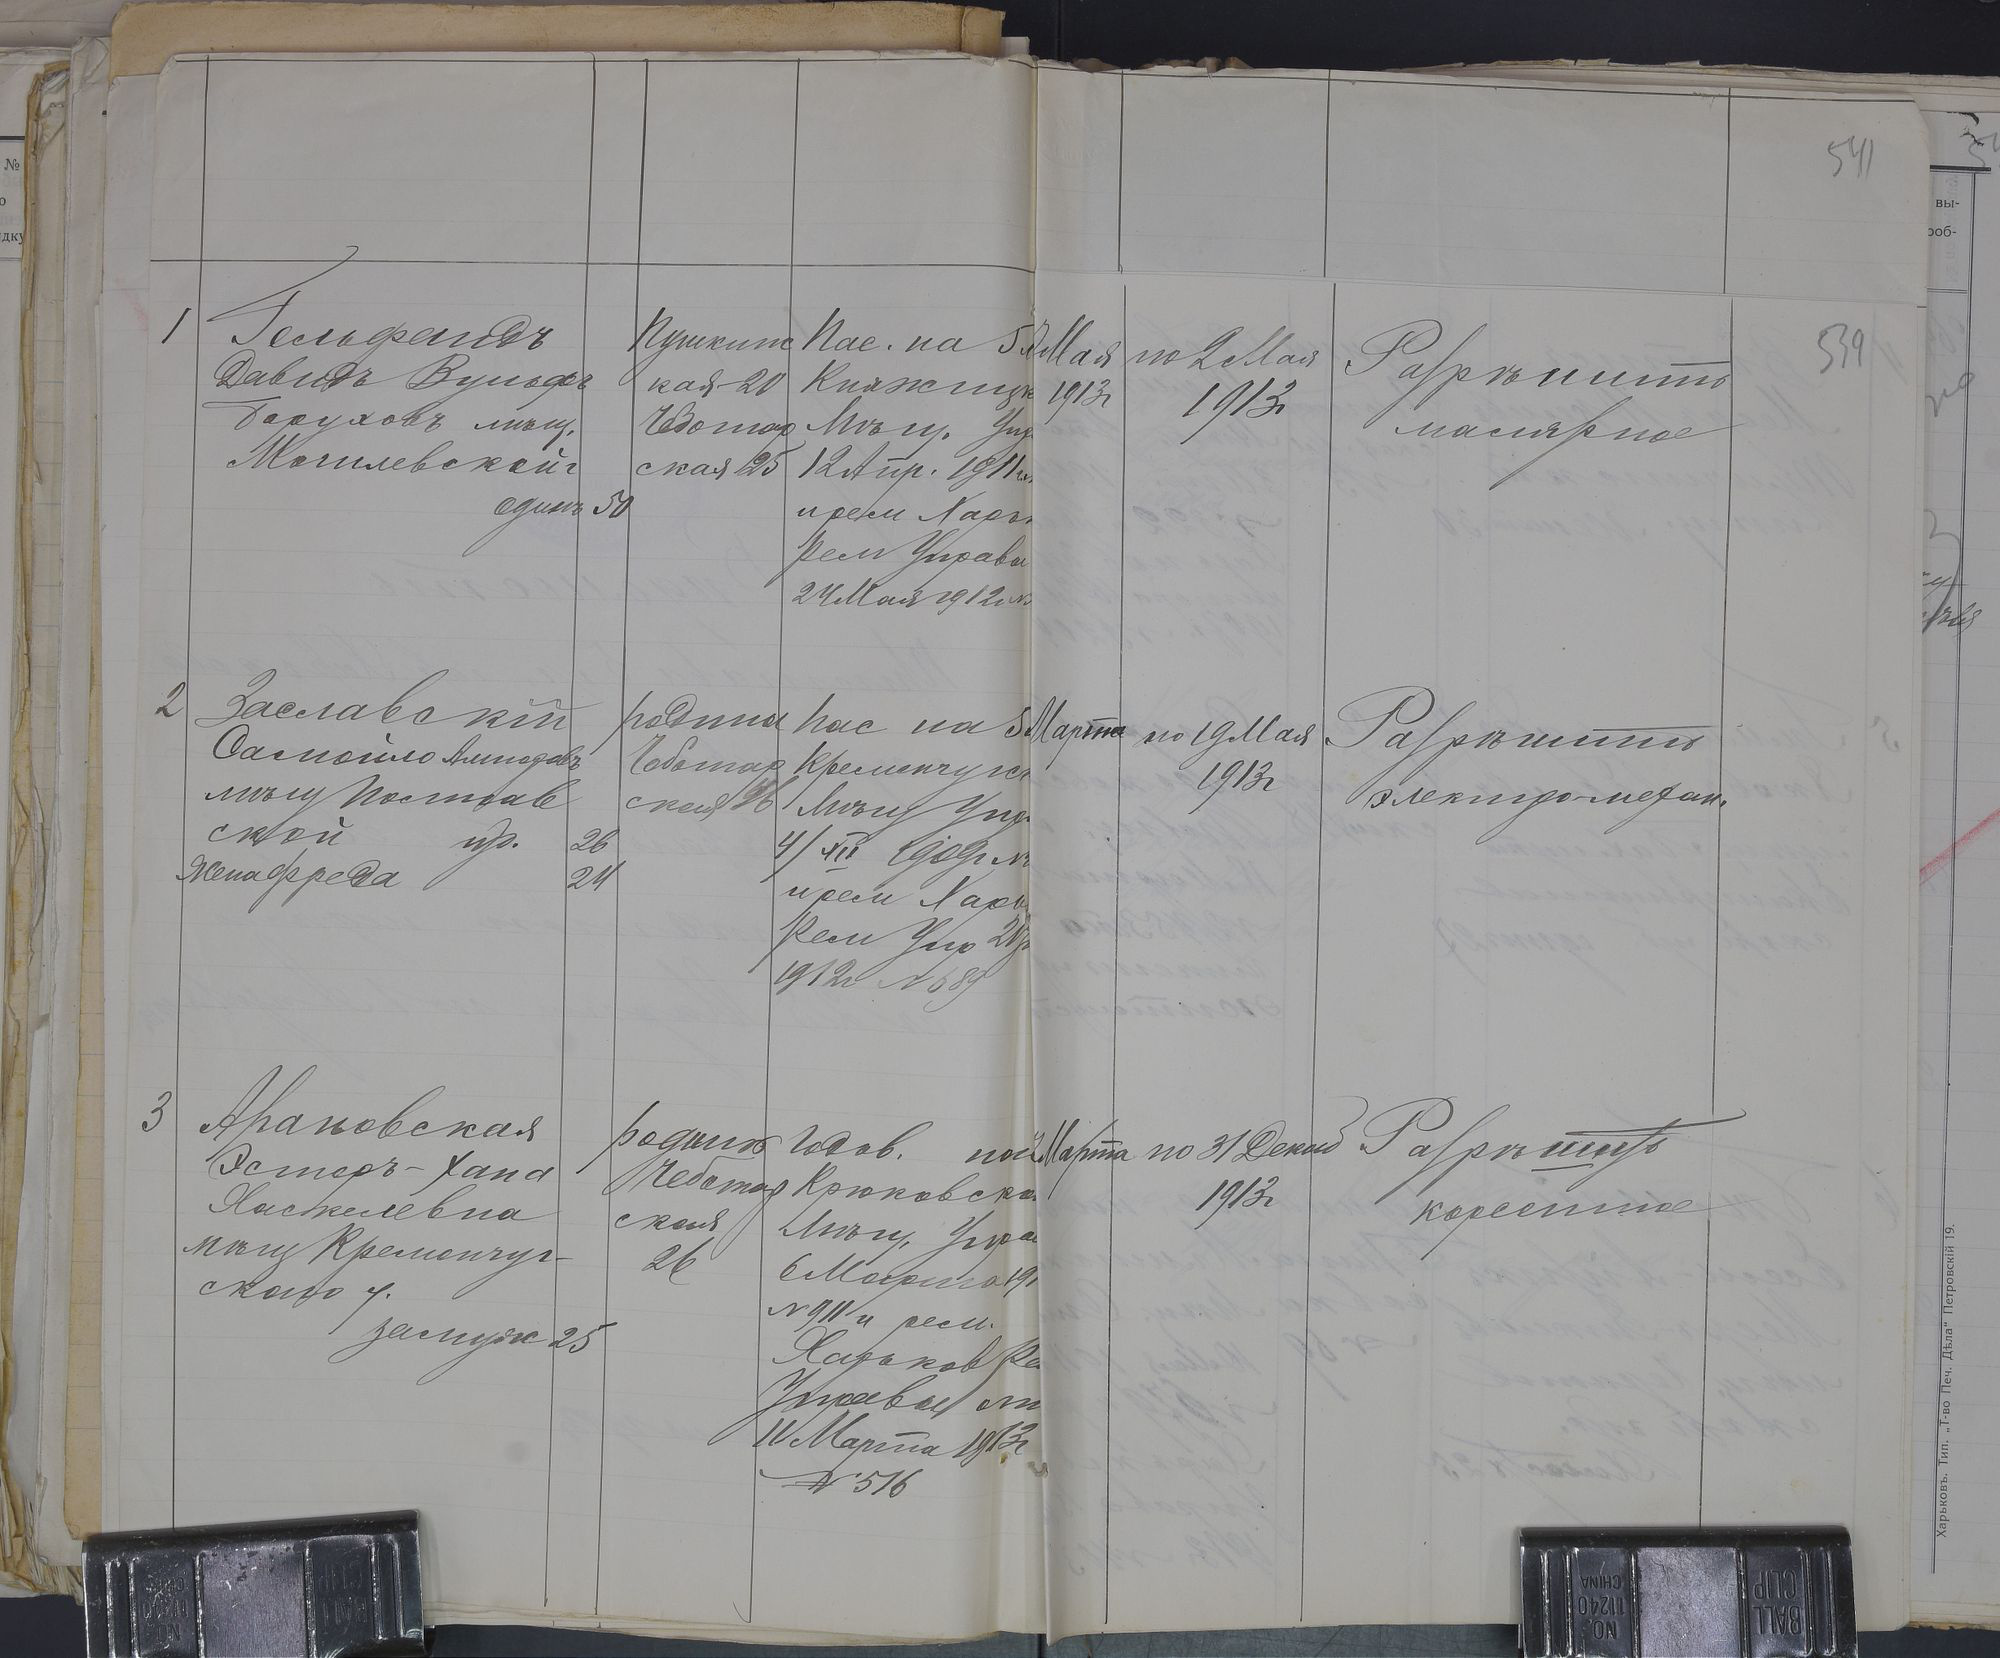 541
539
1
Гельфандъ
Давидъ Вульфъ
Боруховъ мѣщ.
Могилевской г
одинъ 50
Пушкинс
кая-20
Чеботар
ская 25
Пас. на 5
Княжицк
Мѣщ. Упр
12 Апр. 1911 г.
и рем Харьк
Рем Управы
24 Мая 1912 г. №
Мая
1913 г
по 2 Мая
1913 г
Разрѣшить
малярное
2
Заславскій
Самойло
мѣщ Полтав
ской 26
Жена Фреда 24
родина
Чеботар
ская 26
пас на 5
Кременчугск
Мѣщ Упр.
4/XII 1909 г №
и рем Харьк
Рем Упр
1912 г № 689
Марта
по 19 Мая
1913 г
Разрѣшить
электро-механ.
3
Арановская
Эстеръ-Хана
Хаскелевна
мѣщ Кременчуг-
скаго у.
замужн 25
Чеботар
ская
26
Годов.
Крюковска
Мѣщ. Упра
6 Марта 191
№ 911 и рем.
Харьков Ре
Управы
11 Марта 1913 г
№ 516
Марта
по 31 Декаб
1913 г
Разрѣшить
корсетное
№
вы-
роб-
Харьковъ. Тип. „Т-во Печ. Дѣла" Петровскій 19.
BALL
CLIP
NO.
11240
CHINA